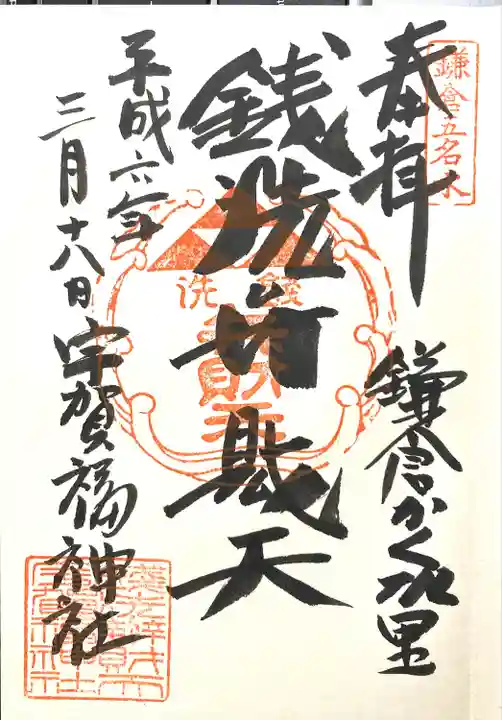 鎌倉五名水
奉拝
鎌倉かくれ里
銭洗弁財天
銭洗
弁財天
平成六年
三月十八日
宇賀福神社